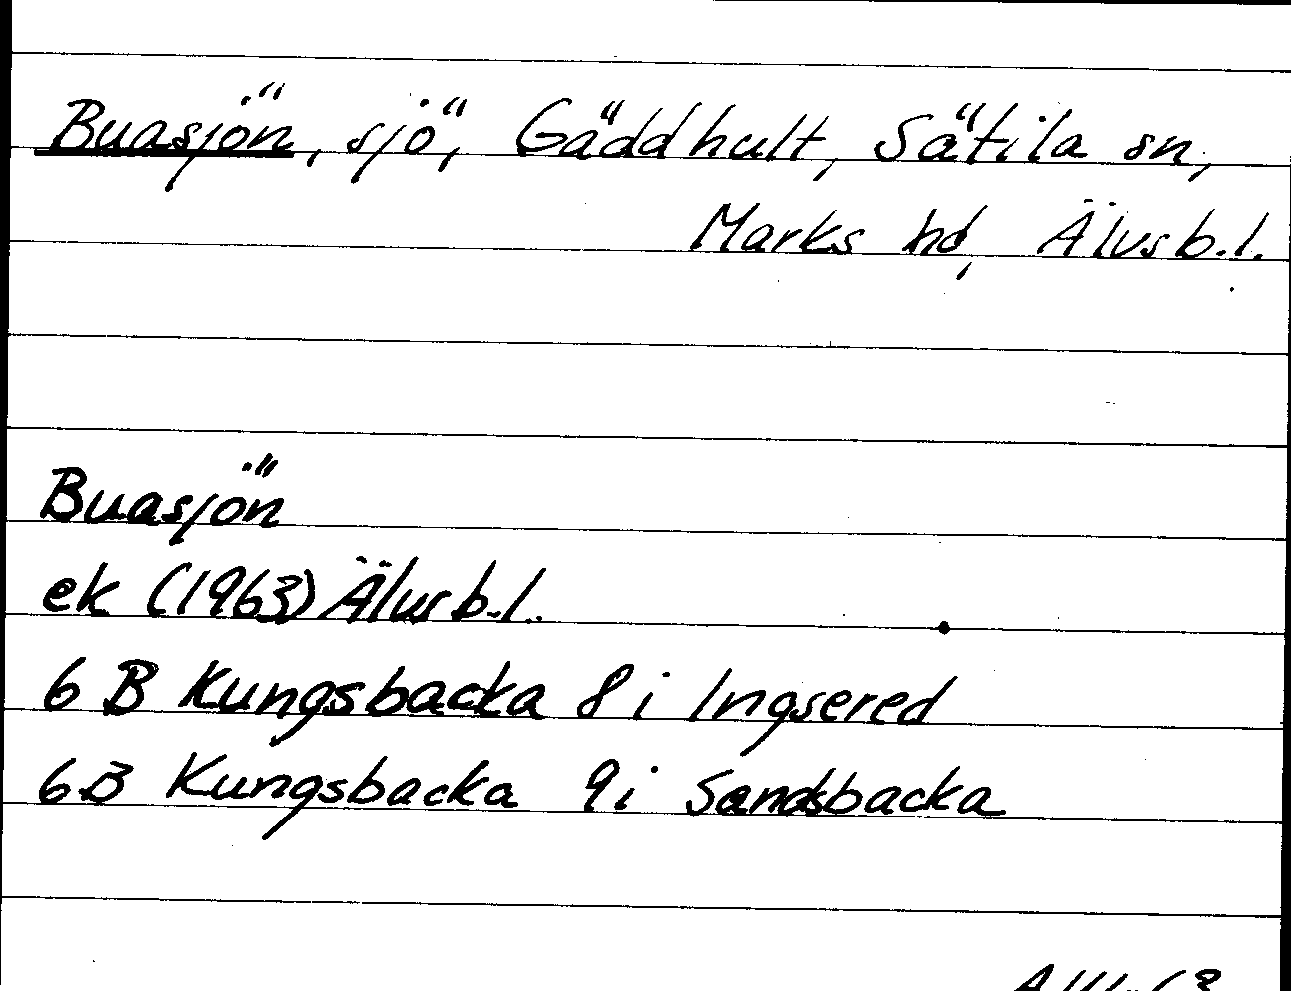 Buasjön, sjö, Gäddhult, Sätila sn,
Marks hd, Älvsb.l.
Buasjön
ek (1963) Älvsb.l.
6 B Kungsbacka 8 i Ingsered
6B Kungsbacka 9i Sandsbacka